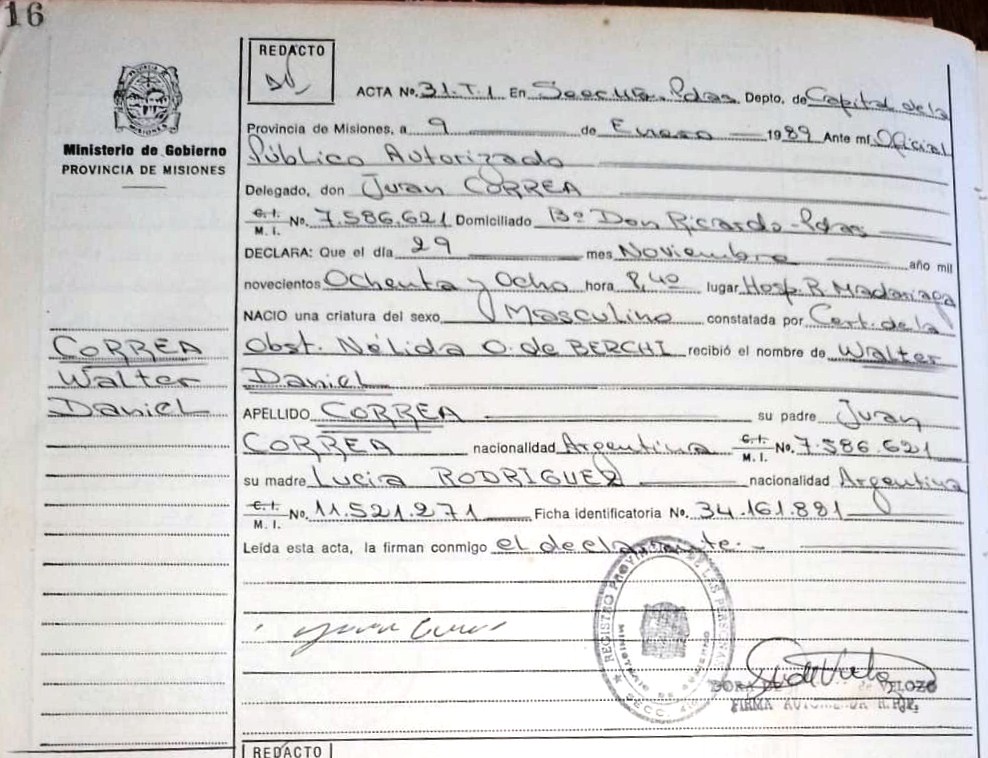 16
REDACTO
ACTA No. 31.T.1 En Secc 4ta. Pdas Depto. de Capital de la
Ministerio de Gobierno
PROVINCIA DE MISIONES
Provincia de Misiones, a 9 de Enero 1989 Ante mí Oficial
Público Autorizado
Delegado, don Juan CORREA
C.I. M.I. No. 7.586.621 Domiciliado Bº Don Ricardo-Pdas
DECLARA: Que el día 29 mes Noviembre año mil
novecientos Ochenta y Ocho hora 8,40 lugar Hosp. R. Madariaga
NACIO una criatura del sexo Masculino constatada por Cert. de la
Obst. Nélida O. de BERCHI recibió el nombre de Walter
Daniel
CORREA
Walter
Daniel
APELLIDO CORREA su padre Juan
CORREA nacionalidad Argentina C.I. M.I. No. 7.586.621
su madre Lucia RODRIGUEZ nacionalidad Argentina
C.I. M.I. No. 11.521.271 Ficha identificatoria No. 34.161.881
Leída esta acta, la firman conmigo el declarante.-
REGISTRO PROVINCIAL DE LAS PERSONAS
MINISTERIO DE GOBIERNO
SECC. 4
DORA DE VELOZO
FIRMA AUTORIZADA R.P.P.
REDACTO